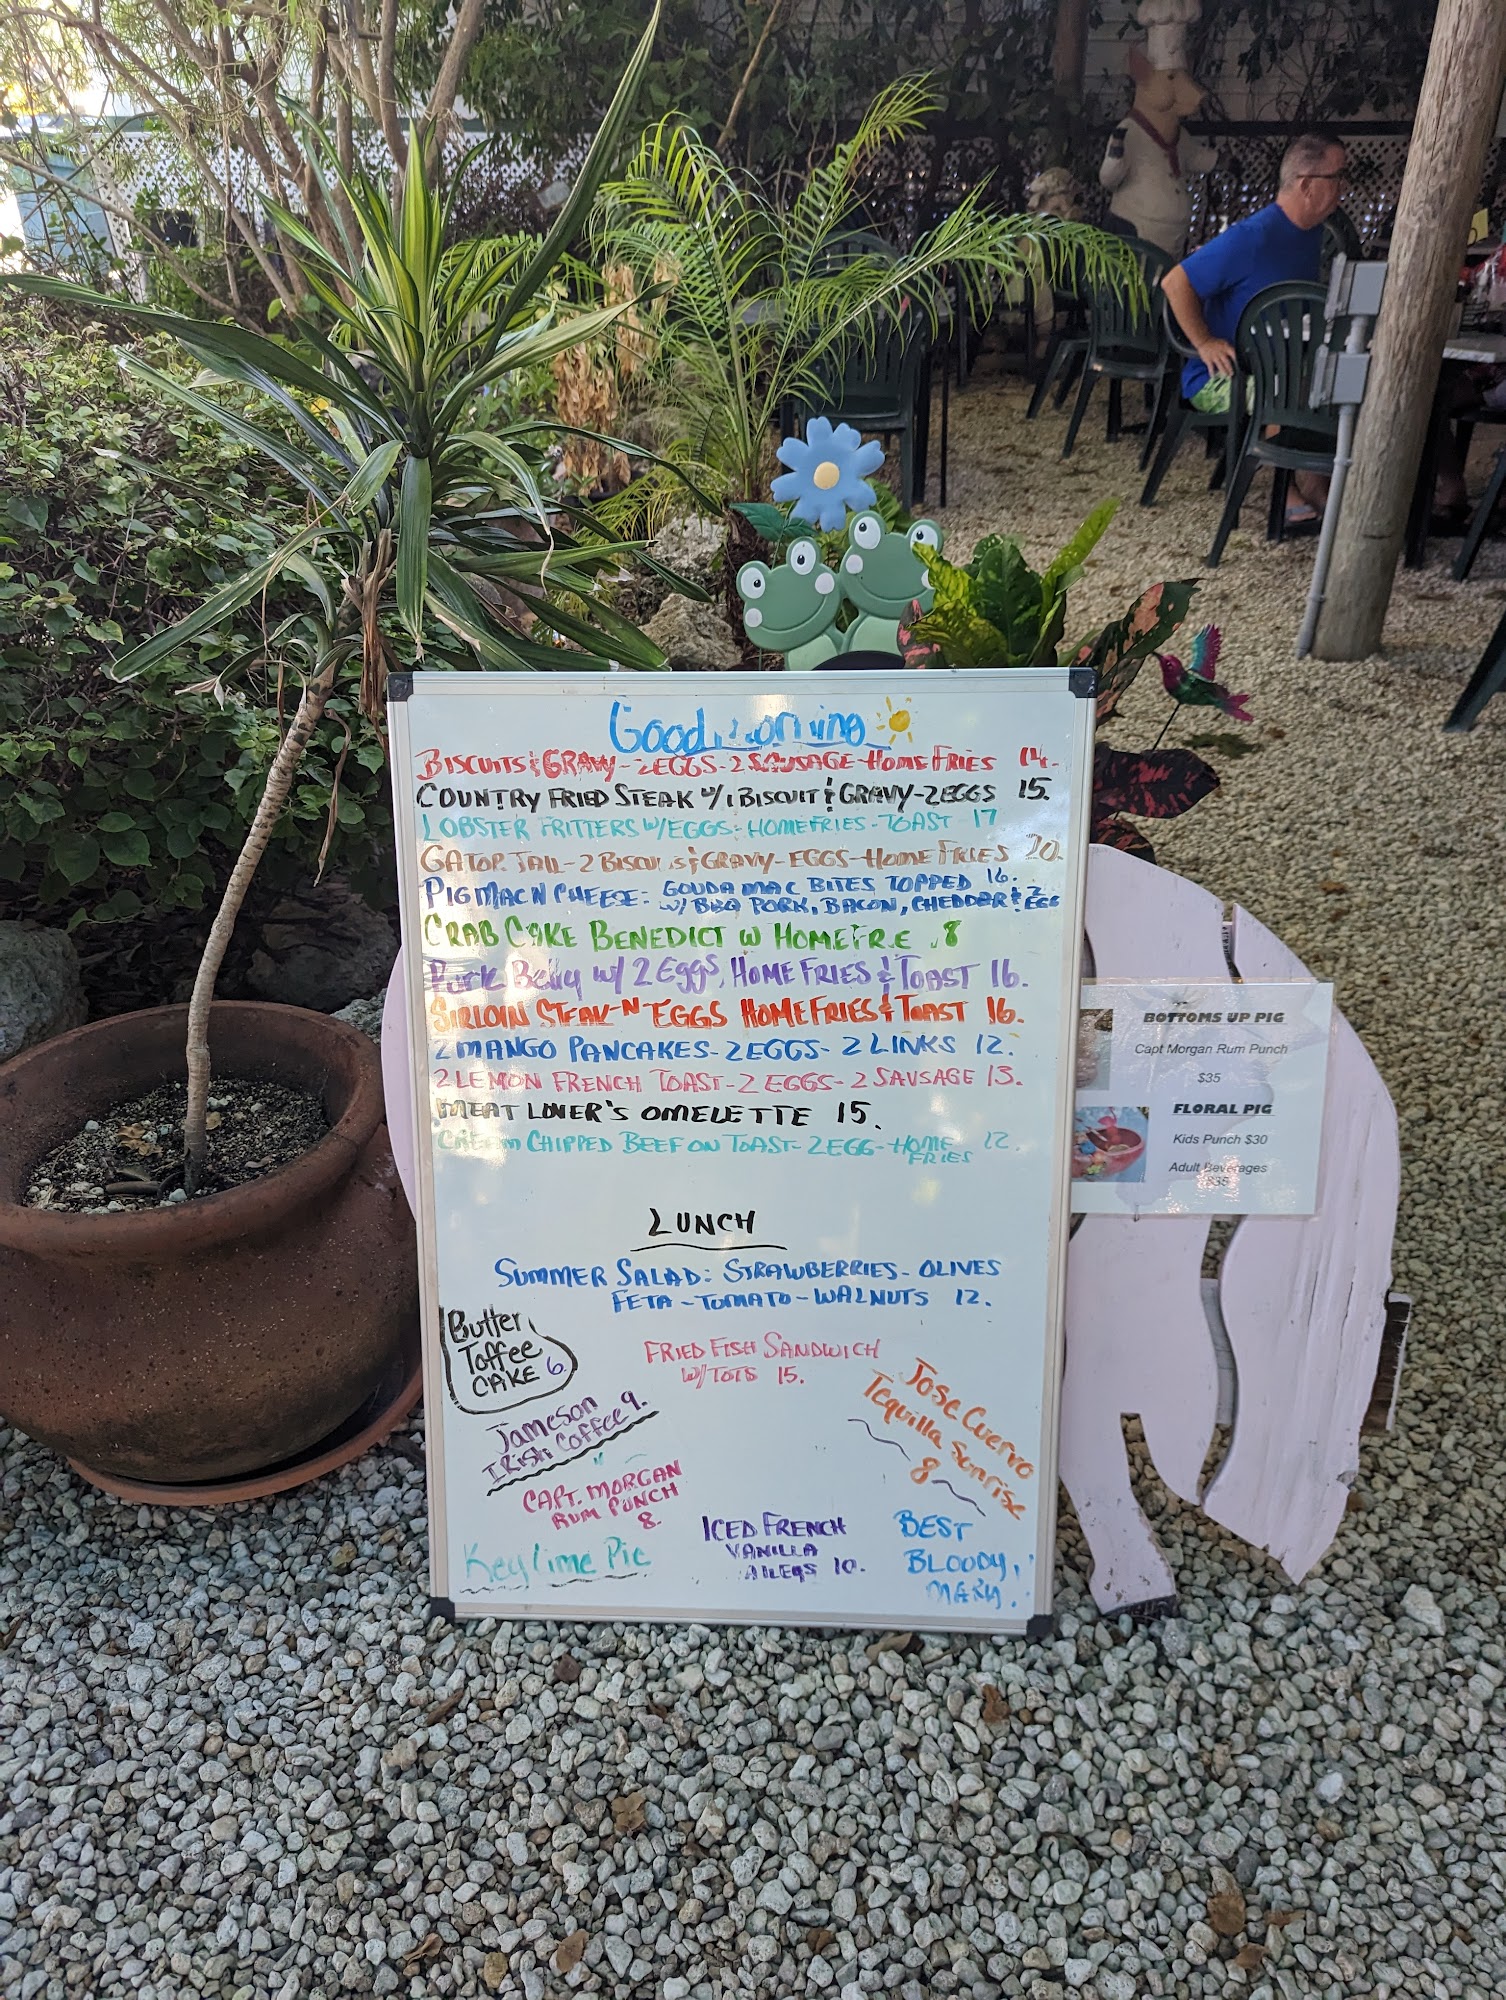 Good morning
BISCUITS & GRAVY - 2 EGGS - 2 SAUSAGE - HOME FRIES 14.
COUNTRY FRIED STEAK W/ 1 BISCUIT & GRAVY - 2 EGGS 15.
LOBSTER FRITTERS W/ EGGS - HOMEFRIES - TOAST 17
GATOR TAIL - 2 BISCUITS & GRAVY - EGGS - HOME FRIES 20.
PIG MAC N CHEESE: GOUDA MAC BITES TOPPED 16.
W/ BBQ PORK, BACON, CHEDDAR & 2 EGG
CRAB CAKE BENEDICT W HOMEFRIE
Pork Belly w/ 2 Eggs, HOME FRIES & TOAST 16.
SIRLOIN STEAK -N- EGGS HOME FRIES & TOAST 16.
2 MANGO PANCAKES - 2 EGGS - 2 LINKS 12.
2 LEMON FRENCH TOAST - 2 EGGS - 2 SAUSAGE 13.
MEAT LOVER'S OMELETTE 15.
CREAM CHIPPED BEEF ON TOAST - 2 EGG - HOME FRIES 12.
LUNCH
SUMMER SALAD: STRAWBERRIES - OLIVES
FETA - TOMATO - WALNUTS 12.
Butter
Toffee
CAKE 6.
FRIED FISH SANDWICH
W/ TOTS 15.
Jameson
IRish Coffee 9.
Jose Cuervo
Tequilla Sunrise
8
CAPT. MORGAN
RUM PUNCH
8.
Key lime Pie
ICED FRENCH
VANILLA
10.
BEST
BLOODY
MARY!
BOTTOMS UP PIG
Capt Morgan Rum Punch
$35
FLORAL PIG
Kids Punch $30
Adult Beverages
$35